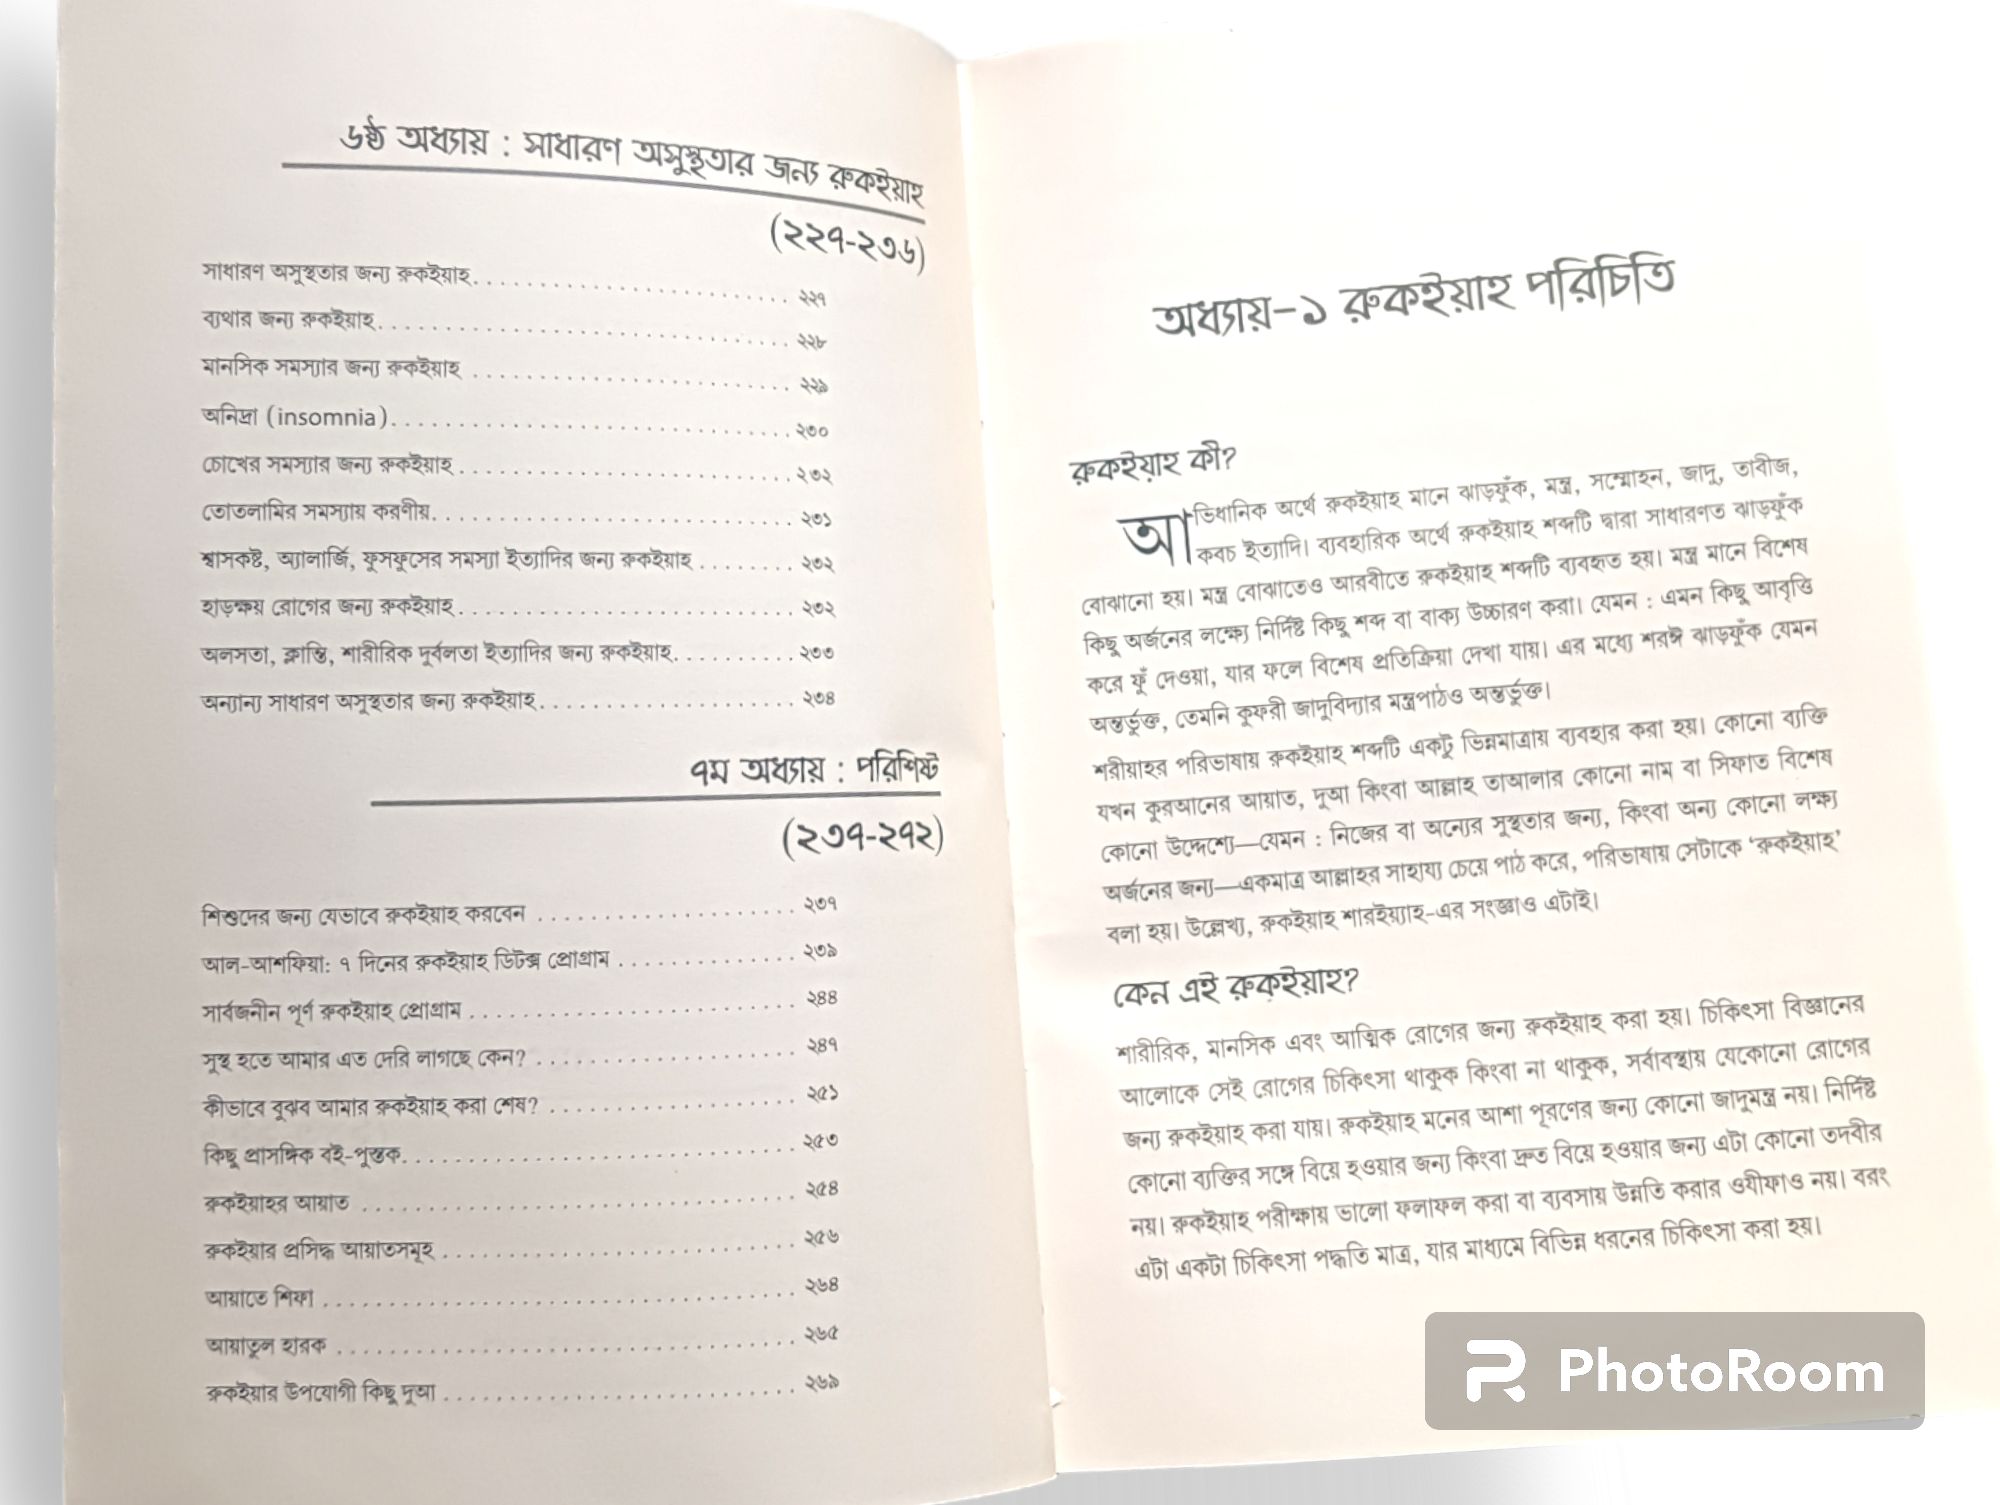 ৬ষ্ঠ অধ্যায় : সাধারণ অসুস্থতার জন্য রুকইয়াহ
(২২৭-২৩৬)
সাধারণ অসুস্থতার জন্য রুকইয়াহ. . . . . . . . . . . . . . . . . . . . . . . . ২২৭
ব্যথার জন্য রুকইয়াহ. . . . . . . . . . . . . . . . . . . . . . . . . . . . . . . ২২৮
মানসিক সমস্যার জন্য রুকইয়াহ . . . . . . . . . . . . . . . . . . . . . . . . ২২৯
অনিদ্রা (insomnia). . . . . . . . . . . . . . . . . . . . . . . . . . . . . . ২৩০
চোখের সমস্যার জন্য রুকইয়াহ . . . . . . . . . . . . . . . . . . . . . . . . . ২৩২
তোতলামির সমস্যায় করণীয়. . . . . . . . . . . . . . . . . . . . . . . . . . . ২৩১
শ্বাসকষ্ট, অ্যালার্জি, ফুসফুসের সমস্যা ইত্যাদির জন্য রুকইয়াহ . . . . . . . ২৩২
হাড়ক্ষয় রোগের জন্য রুকইয়াহ . . . . . . . . . . . . . . . . . . . . . . . . . ২৩২
অলসতা, ক্লান্তি, শারীরিক দুর্বলতা ইত্যাদির জন্য রুকইয়াহ. . . . . . . . . ২৩৩
অন্যান্য সাধারণ অসুস্থতার জন্য রুকইয়াহ. . . . . . . . . . . . . . . . . . . ২৩৪
৭ম অধ্যায় : পরিশিষ্ট
(২৩৭-২৭২)
শিশুদের জন্য যেভাবে রুকইয়াহ করবেন . . . . . . . . . . . . . . . . . . . . ২৩৭
আল-আশফিয়া: ৭ দিনের রুকইয়াহ ডিটক্স প্রোগ্রাম . . . . . . . . . . . . . . ২৩৯
সার্বজনীন পূর্ণ রুকইয়াহ প্রোগ্রাম . . . . . . . . . . . . . . . . . . . . . . . . . ২৪৪
সুস্থ হতে আমার এত দেরি লাগছে কেন? . . . . . . . . . . . . . . . . . . . . ২৪৭
কীভাবে বুঝব আমার রুকইয়াহ করা শেষ? . . . . . . . . . . . . . . . . . . . ২৫১
কিছু প্রাসঙ্গিক বই-পুস্তক. . . . . . . . . . . . . . . . . . . . . . . . . . . . . . ২৫৩
রুকইয়াহর আয়াত . . . . . . . . . . . . . . . . . . . . . . . . . . . . . . . . . ২৫৪
রুকইয়ার প্রসিদ্ধ আয়াতসমূহ . . . . . . . . . . . . . . . . . . . . . . . . . . . ২৫৬
আয়াতে শিফা . . . . . . . . . . . . . . . . . . . . . . . . . . . . . . . . . . . . ২৬৪
আয়াতুল হারক . . . . . . . . . . . . . . . . . . . . . . . . . . . . . . . . . . . ২৬৫
রুকইয়ার উপযোগী কিছু দুআ . . . . . . . . . . . . . . . . . . . . . . . . . . . ২৬৯
অধ্যায়-১ রুকইয়াহ পরিচিতি
রুকইয়াহ কী?
আভিধানিক অর্থে রুকইয়াহ মানে ঝাড়ফুঁক, মন্ত্র, সম্মোহন, জাদু, তাবীজ,
কবচ ইত্যাদি। ব্যবহারিক অর্থে রুকইয়াহ শব্দটি দ্বারা সাধারণত ঝাড়ফুঁক
বোঝানো হয়। মন্ত্র বোঝাতেও আরবীতে রুকইয়াহ শব্দটি ব্যবহৃত হয়। মন্ত্র মানে বিশেষ
কিছু অর্জনের লক্ষ্যে নির্দিষ্ট কিছু শব্দ বা বাক্য উচ্চারণ করা। যেমন : এমন কিছু আবৃত্তি
করে ফুঁ দেওয়া, যার ফলে বিশেষ প্রতিক্রিয়া দেখা যায়। এর মধ্যে শরঈ ঝাড়ফুঁক যেমন
অন্তর্ভুক্ত, তেমনি কুফরী জাদুবিদ্যার মন্ত্রপাঠও অন্তর্ভুক্ত।
শরীয়াহর পরিভাষায় রুকইয়াহ শব্দটি একটু ভিন্নমাত্রায় ব্যবহার করা হয়। কোনো ব্যক্তি
যখন কুরআনের আয়াত, দুআ কিংবা আল্লাহ তাআলার কোনো নাম বা সিফাত বিশেষ
কোনো উদ্দেশ্যে—যেমন : নিজের বা অন্যের সুস্থতার জন্য, কিংবা অন্য কোনো লক্ষ্য
অর্জনের জন্য—একমাত্র আল্লাহর সাহায্য চেয়ে পাঠ করে, পরিভাষায় সেটাকে ‘রুকইয়াহ’
বলা হয়। উল্লেখ্য, রুকইয়াহ শারইয়্যাহ-এর সংজ্ঞাও এটাই।
কেন এই রুকইয়াহ?
শারীরিক, মানসিক এবং আত্মিক রোগের জন্য রুকইয়াহ করা হয়। চিকিৎসা বিজ্ঞানের
আলোকে সেই রোগের চিকিৎসা থাকুক কিংবা না থাকুক, সর্বাবস্থায় যেকোনো রোগের
জন্য রুকইয়াহ করা যায়। রুকইয়াহ মনের আশা পূরণের জন্য কোনো জাদুমন্ত্র নয়। নির্দিষ্ট
কোনো ব্যক্তির সঙ্গে বিয়ে হওয়ার জন্য কিংবা দ্রুত বিয়ে হওয়ার জন্য এটা কোনো তদবীর
নয়। রুকইয়াহ পরীক্ষায় ভালো ফলাফল করা বা ব্যবসায় উন্নতি করার ওযীফাও নয়। বরং
এটা একটা চিকিৎসা পদ্ধতি মাত্র, যার মাধ্যমে বিভিন্ন ধরনের চিকিৎসা করা হয়।
PhotoRoom